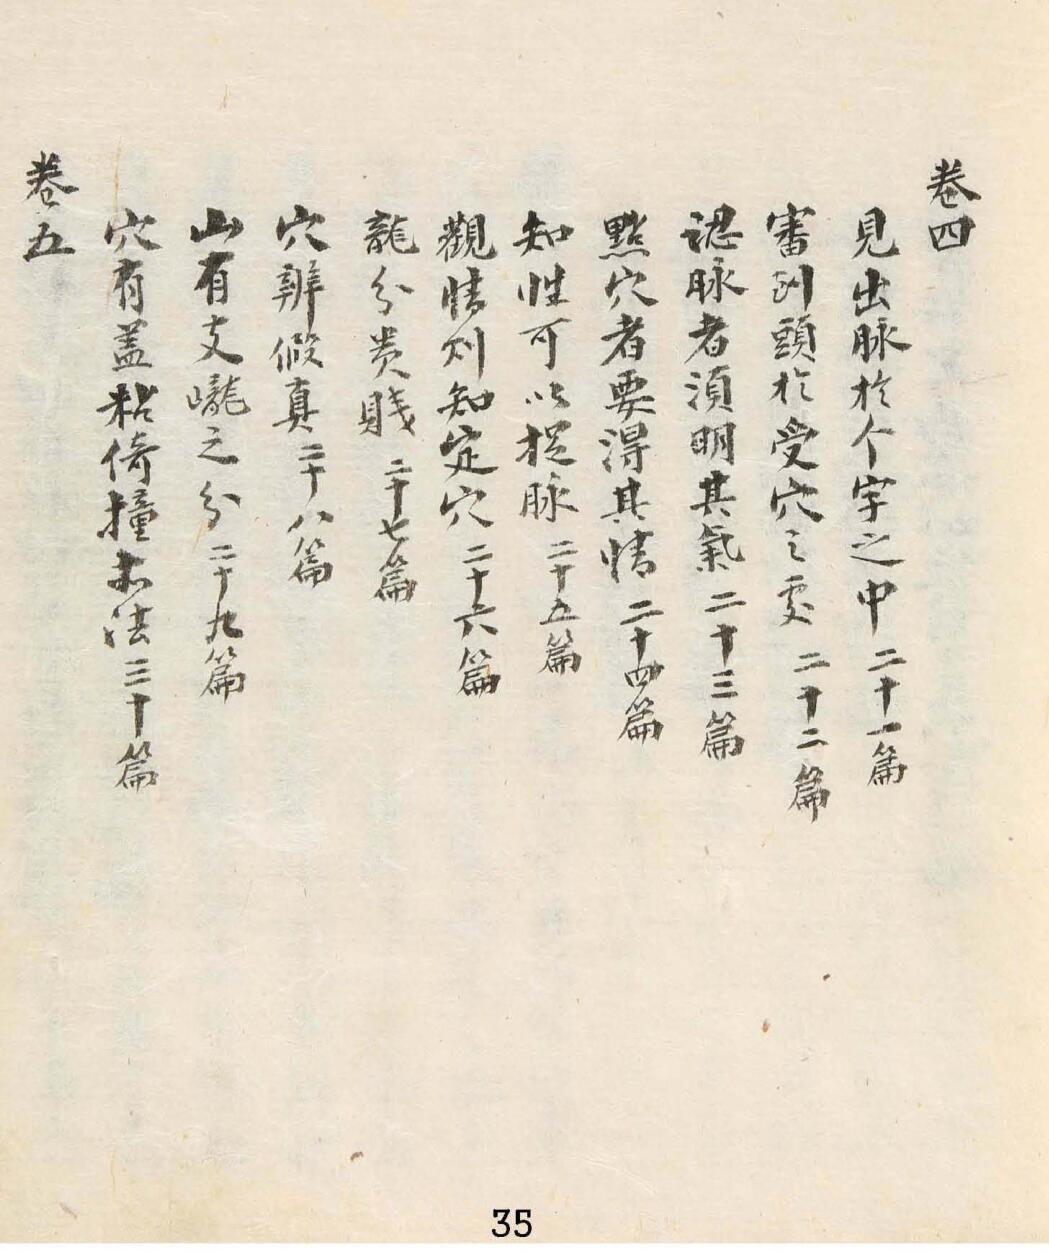 卷四
見出脉於个字之中二十一篇
審到頭於受穴之處二十二篇
認脉者須明其氣二十三篇
點穴者要得其情二十四篇
知性可以挖脉二十五篇
觀情則知定穴二十六篇
龍分贵賤二十七篇
穴辨假真二十八篇
山有支巃之分二十九篇
穴有盖粘倚撞 法三十篇
卷五
35